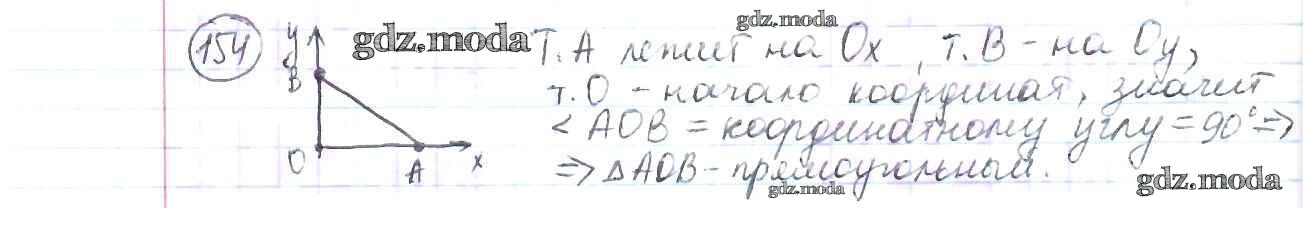 154
y
B
O
A
x
gdz.moda
gdz.moda
Т. А лежит на Ox, т. B - на Oy,
т. O - начало координат, значит
< AOB = координатному углу = 90° =>
=> ΔAOB - прямоугольный.
gdz.moda
gdz.moda